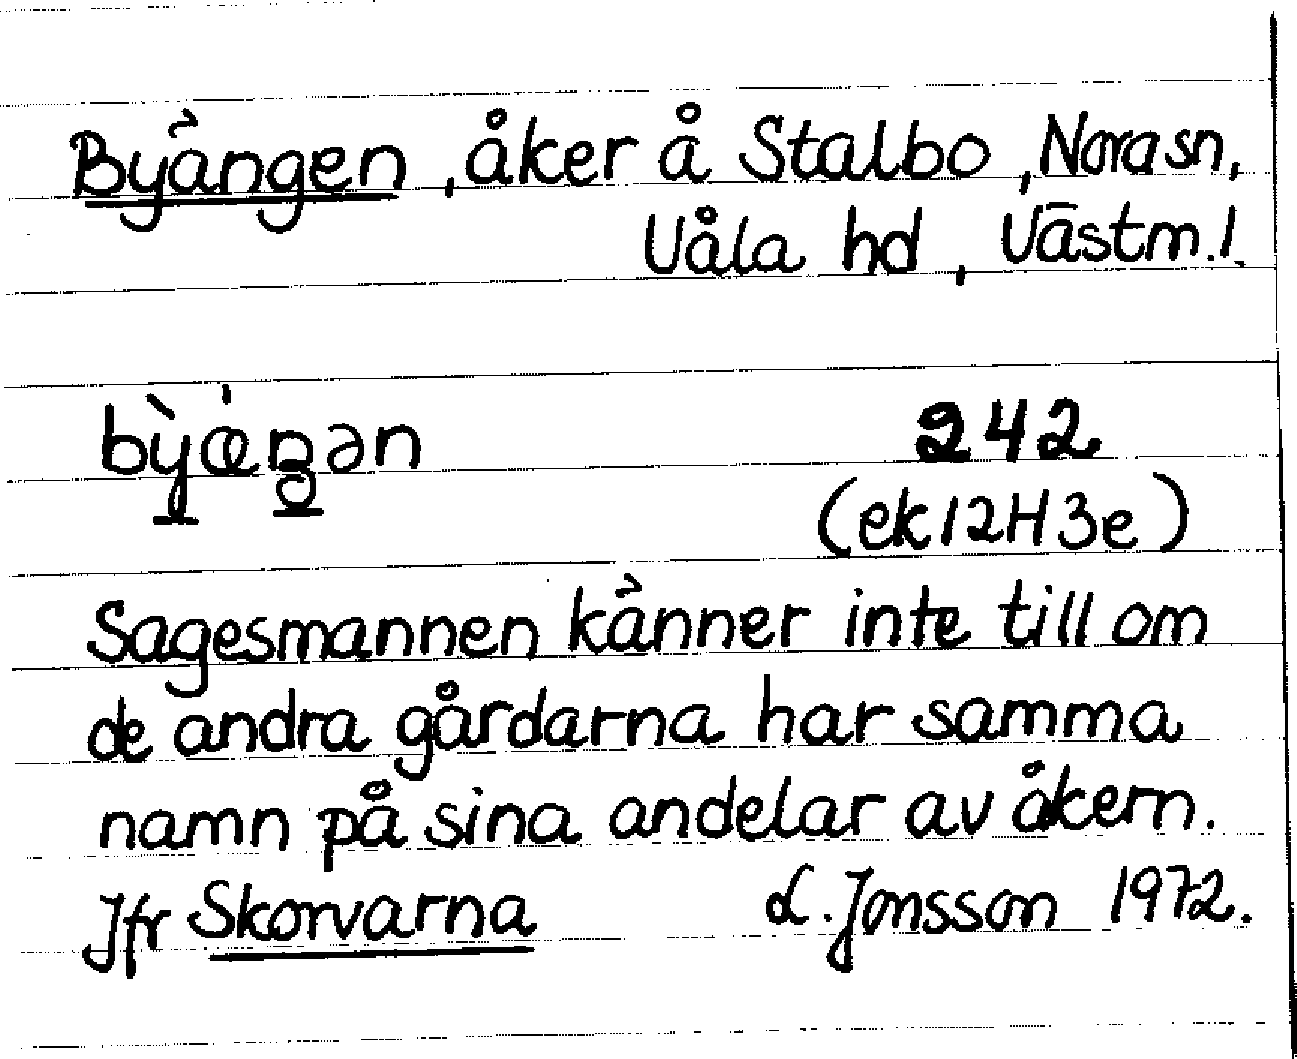 Byängen, åker å Stalbo, Nora sn,
Våla hd, Västm. l.
bỳǽŋən 242
(ek 12H3e)
Sagesmannen känner inte till om
de andra gårdarna har samma
namn på sina andelar av åkern.
Jfr Skorvarna L. Jonsson 1972.